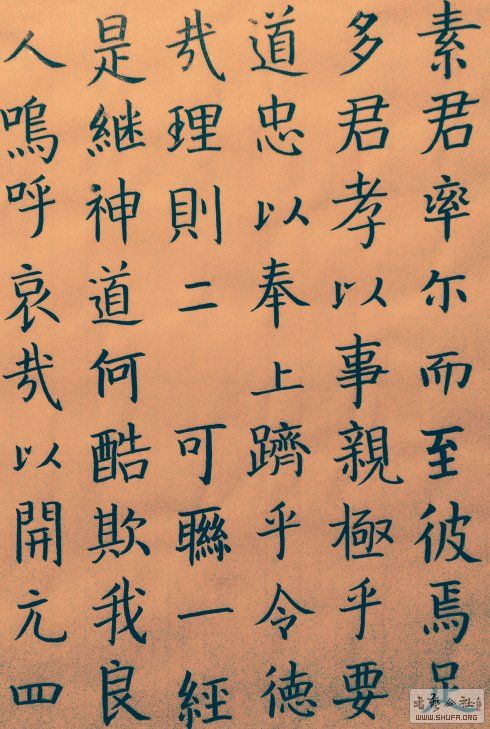 素君率尔而至彼焉足
多君孝以事親極乎要
道忠以奉上躋乎令德
哉理則二可聯一經
是継神道何酷欺我良
人嗚呼哀哉以開元四
WWW.SHUFA.ORG